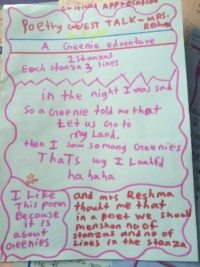 Critical Appreciation
Poetry GUEST TALK - MRS.
Reshma
A Greenie edventure
2 stanzas
Each stanza 3 lines
in the night I was sad
So a Greenie told me that
Let us Go to
my Land.
then I saw so many Greenies
Thats wy I Laufed
ha ha ha
I Like
This poem
Becouse
it is
about
Greenies
and mrs Reshma
thought me that
in a poet we should
menshon no of
stanzas and no of
Lines in the stanza